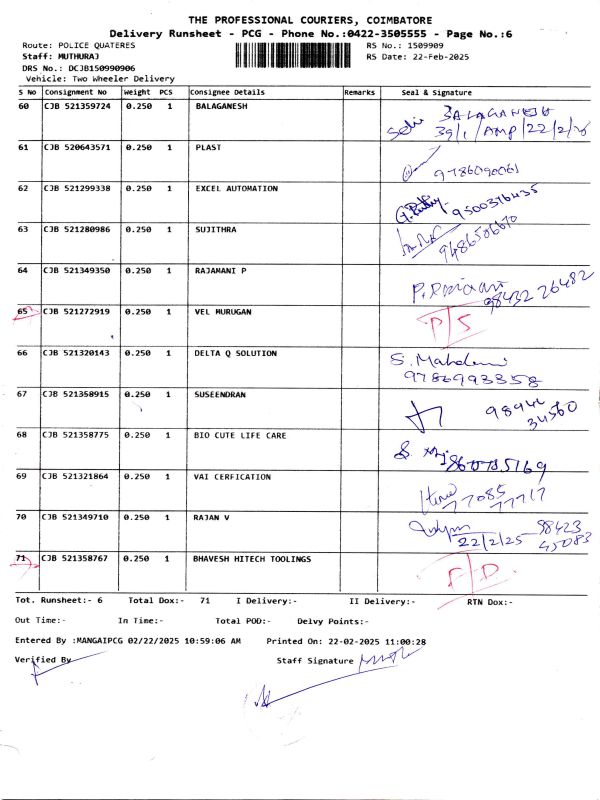 THE PROFESSIONAL COURIERS, COIMBATORE
Delivery Runsheet - PCG - Phone No.:0422-3505555 - Page No.:6
Route: POLICE QUATERES RS No.: 1509909
Staff: MUTHURAJ RS Date: 22-Feb-2025
DRS No.: DCJB150990906
Vehicle: Two Wheeler Delivery
S No Consignment No Weight PCS Consignee Details Remarks Seal & Signature
60 CJB 521359724 0.250 1 BALAGANESH BALAGANESH
39/1/AMP/22/2/25
61 CJB 520643571 0.250 1 PLAST 9786090061
62 CJB 521299338 0.250 1 EXCEL AUTOMATION 9500376435
63 CJB 521280986 0.250 1 SUJITHRA 9486506670
64 CJB 521349350 0.250 1 RAJAMANI P 98432 26482
65 CJB 521272919 0.250 1 VEL MURUGAN P/S
66 CJB 521320143 0.250 1 DELTA Q SOLUTION S.
9786993358
67 CJB 521358915 0.250 1 SUSEENDRAN 98944
34560
68 CJB 521358775 0.250 1 BIO CUTE LIFE CARE
69 CJB 521321864 0.250 1 VAI CERFICATION 77085
77717
70 CJB 521349710 0.250 1 RAJAN V 98423
22/2/25 45083
71 CJB 521358767 0.250 1 BHAVESH HITECH TOOLINGS F/D
Tot. Runsheet:- 6 Total Dox:- 71 I Delivery:- II Delivery:- RTN Dox:-
Out Time:- In Time:- Total POD:- Delvy Points:-
Entered By :MANGAIPCG 02/22/2025 10:59:06 AM Printed On: 22-02-2025 11:00:28
Verified By Staff Signature